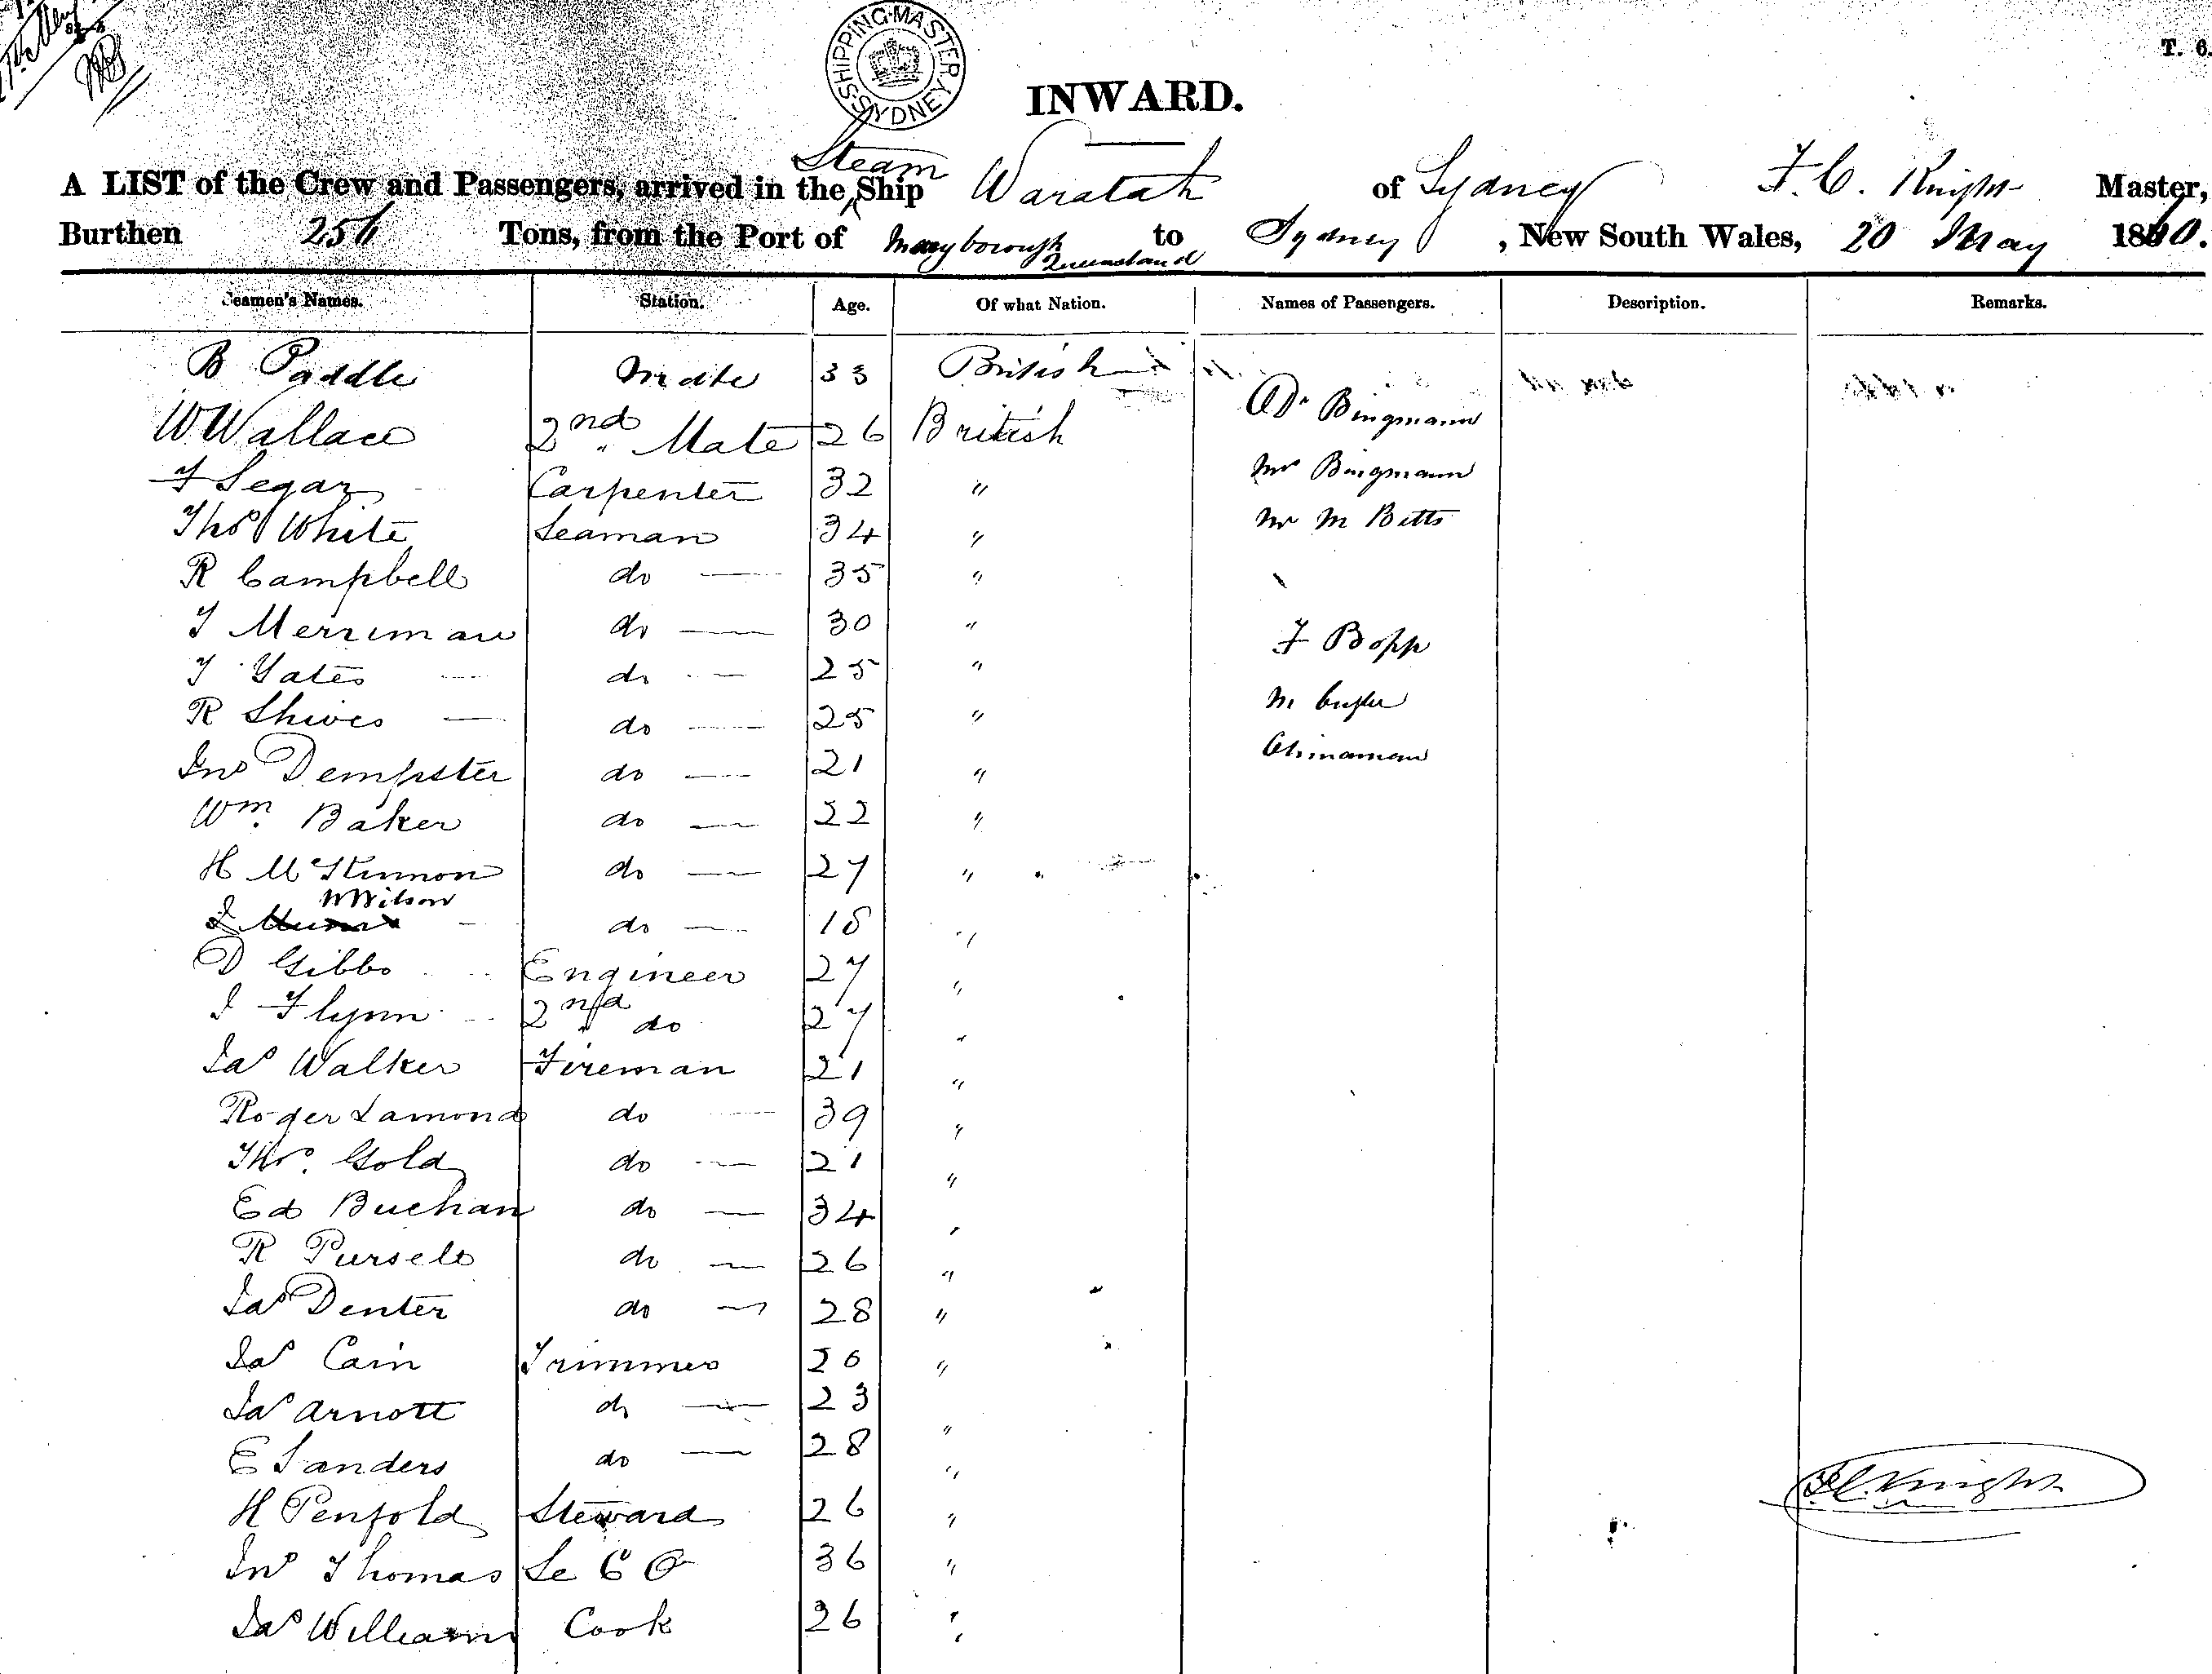 SHIPPING·MASTER
SYDNEY
T. 6.
INWARD.
Steam
A LIST of the Crew and Passengers, arrived in the Ship Waratah of Sydney F. C. Knight Master,
Burthen 256 Tons, from the Port of Maryborough Queensland to Sydney, New South Wales, 20 May 1860.
Seamen's Names. Station. Age. Of what Nation. Names of Passengers. Description. Remarks.
B Paddle Mate 33 British
Dr Bingmann
W Wallace 2nd Mate 26 British
Mrs Bingmann
F Segar Carpenter 32 "
Thos White Seaman 34 " Mr M Betts
R Campbell do — 35 "
T Merriman do — 30 " F Bopp
T Yates — do — 25 "
R Shives — do — 25 " M
Jno Dempster do — 21 " Chinaman
Wm. Baker do — 22 "
H McKinnon do — 27 "
W Wilson
J do — 18 "
D Gibbs Engineer 27 "
J Flynn 2nd do 27 "
Jas Walker Fireman 21 "
Roger Lamond do — 39 "
Thos. Gold do — 21 "
Ed Buchan do — 34 "
R Pursell do — 26 "
Jas Denter do — 28 "
Jas Cain Trimmer 20 "
Jas Arnott do — 23 "
E Sanders do — 28 "
F C Knight
H Penfold Steward 26 "
Jno Thomas 36 "
Jas Williams Cook 26 "